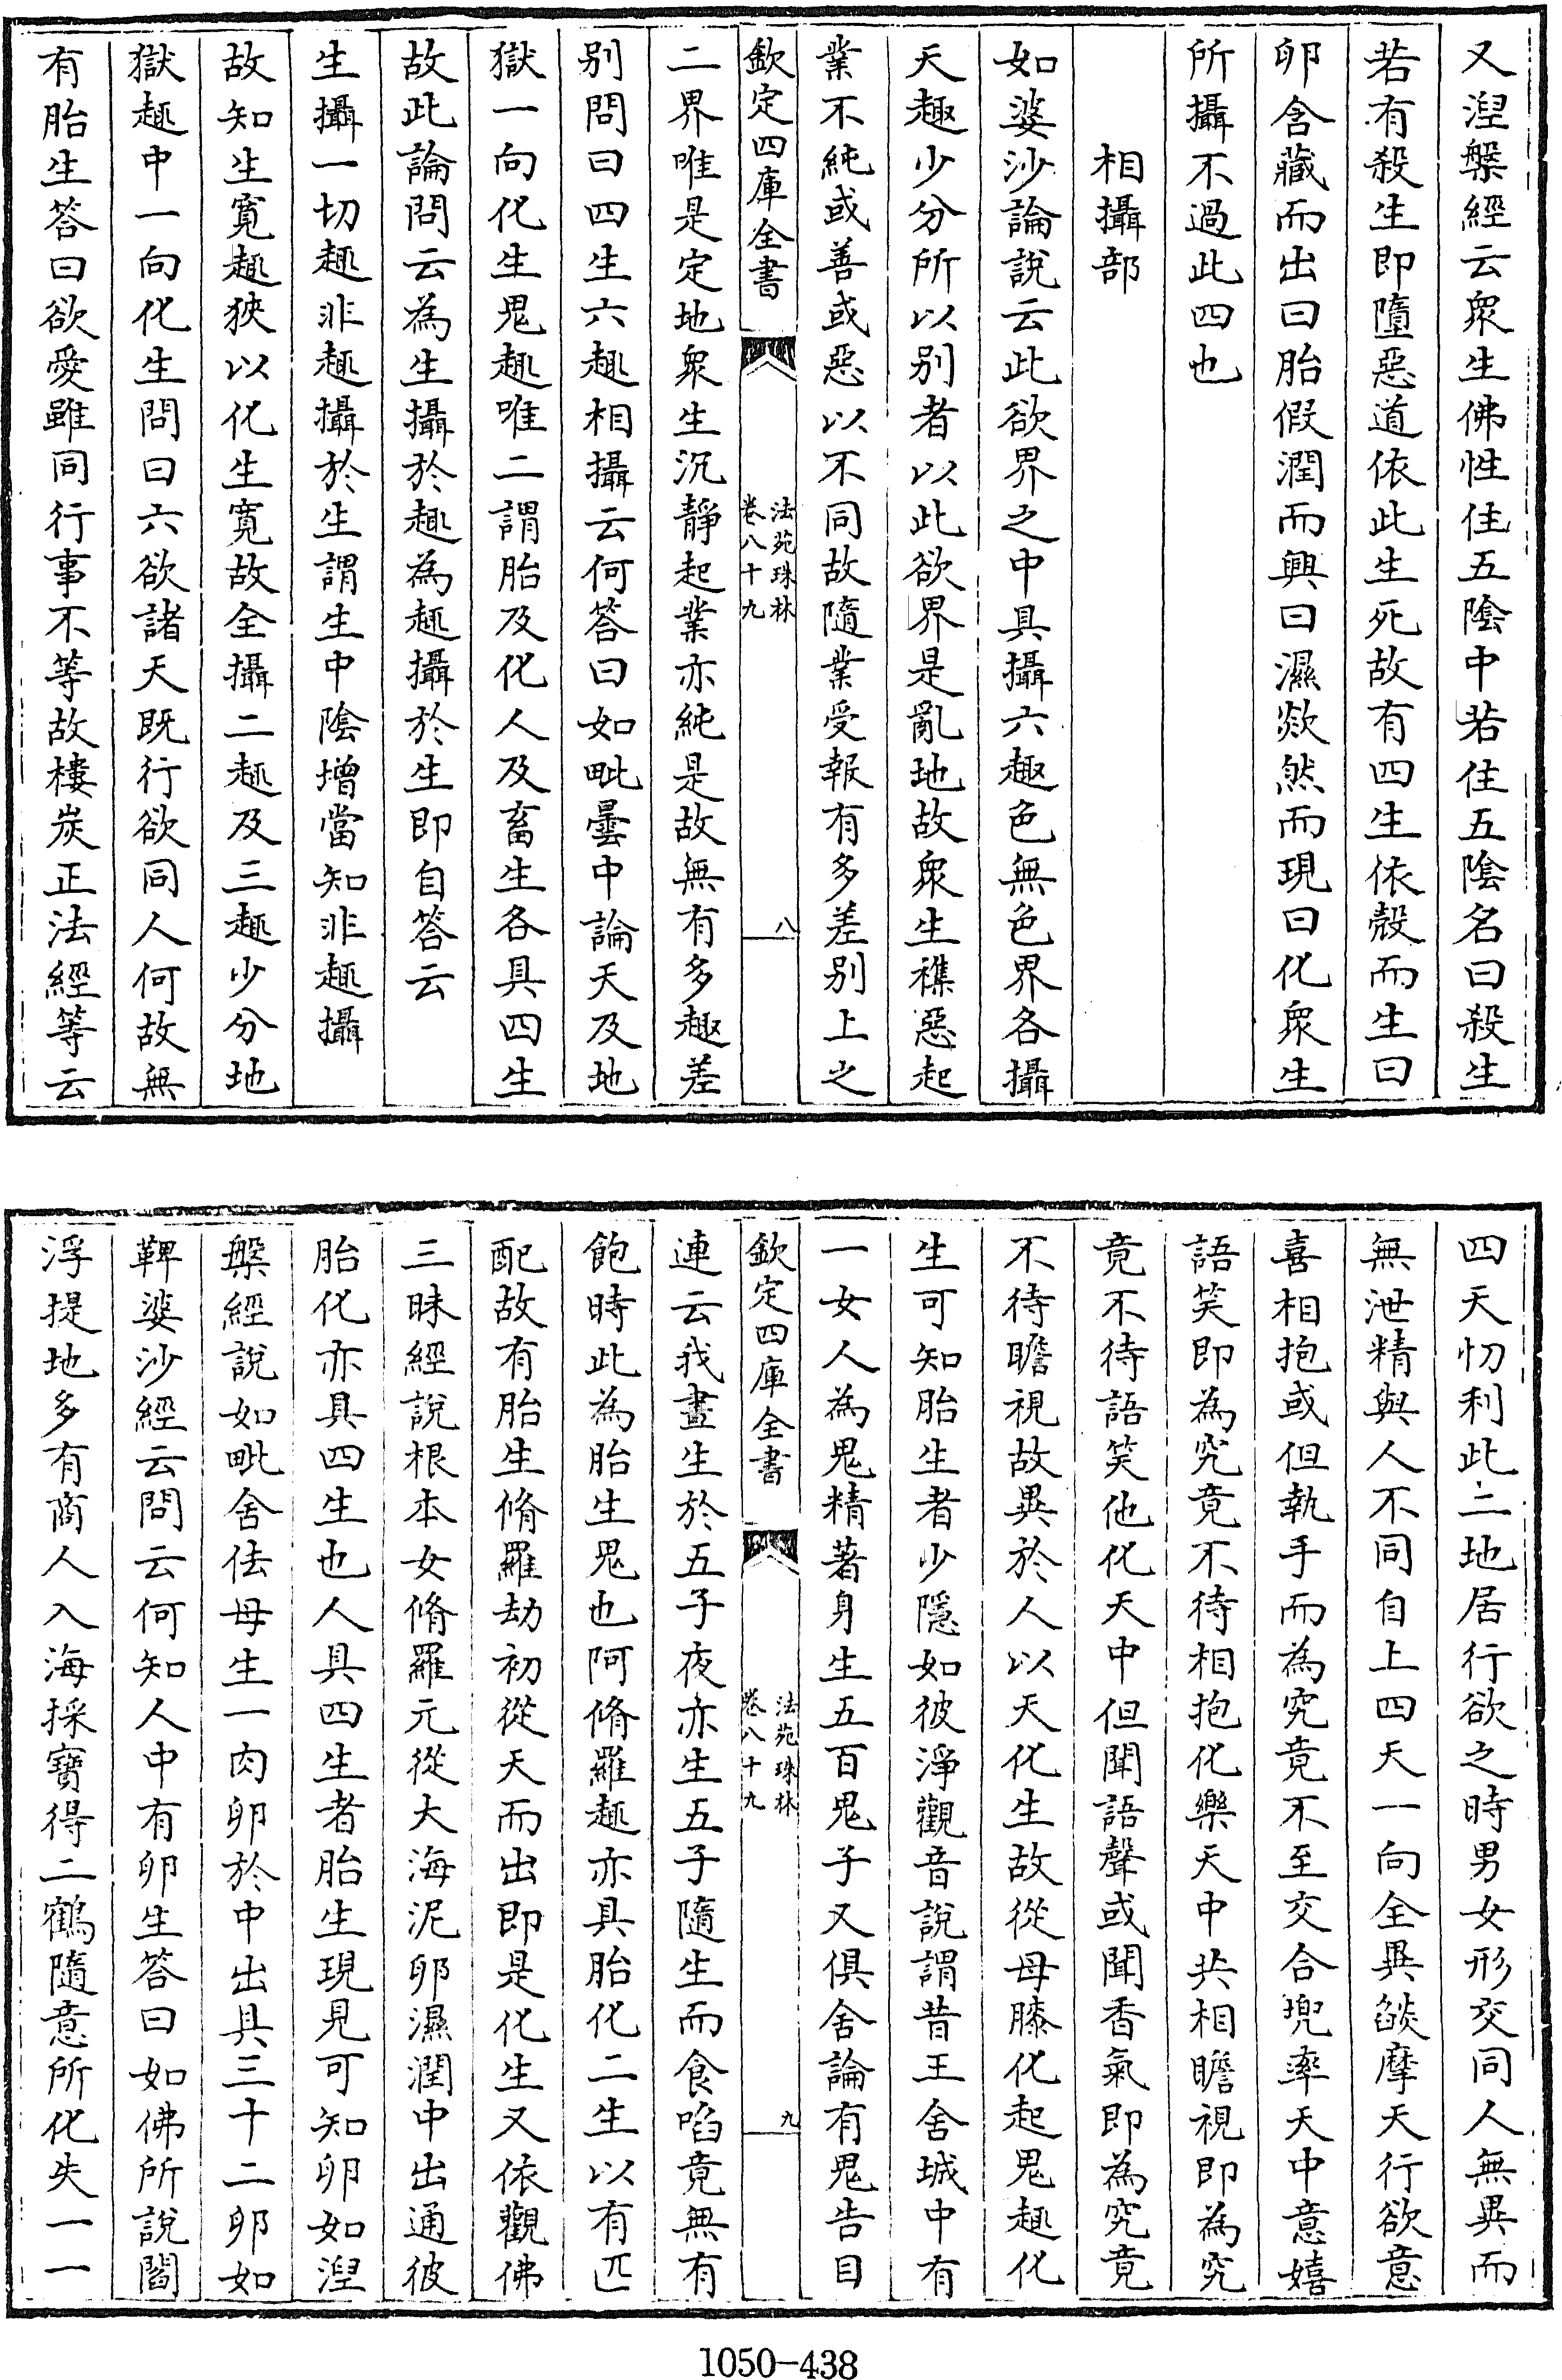 又涅槃經云衆生佛性住五陰中若住五陰名曰殺生
若有殺生即墮惡道依此生死故有四生依殻而生曰
卵含藏而出曰胎假潤而興曰濕欻然而現曰化衆生
所攝不過此四也
相攝部
如婆沙論說云此欲界之中具攝六趣色無色界各攝
天趣少分所以别者以此欲界是亂地故衆生穕惡起
業不純或善或惡以不同故隨業受報有多差别上之
欽定四庫全書
法苑珠林
卷八十九
八
二界唯是定地衆生沉靜起業亦純是故無有多趣差
别問曰四生六趣相攝云何答曰如毗曇中論天及地
獄一向化生鬼趣唯二謂胎及化人及畜生各具四生
故此論問云為生攝於趣為趣攝於生即自答云
生攝一切趣非趣攝於生謂生中陰增當知非趣攝
故知生寛趣狹以化生寛故全攝二趣及三趣少分地
獄趣中一向化生問曰六欲諸天既行欲同人何故無
有胎生答曰欲愛雖同行事不等故樓炭正法經等云
四天忉利此二地居行欲之時男女形交同人無異而
無泄精與人不同自上四天一向全異燄摩天行欲意
喜相抱或但執手而為究竟不至交合兜率天中意嬉
語笑即為究竟不待相抱化樂天中共相瞻視即為究
竟不待語笑他化天中但聞語聲或聞香氣即為究竟
不待瞻視故異於人以天化生故從母膝化起鬼趣化
生可知胎生者少隱如彼淨觀音說謂昔王舍城中有
一女人為鬼精著身生五百鬼子又俱舍論有鬼告目
欽定四庫全書
法苑珠林
卷八十九
九
連云我晝生於五子夜亦生五子隨生而食㗖竟無有
飽時此為胎生鬼也阿脩羅趣亦具胎化二生以有匹
配故有胎生脩羅劫初從天而出即是化生又依觀佛
三昧經說根本女脩羅元從大海泥卵濕潤中出通彼
胎化亦具四生也人具四生者胎生現見可知卵如涅
槃經說如毗舍佉母生一肉卵於中出具三十二卵如
鞞婆沙經云問云何知人中有卵生答曰如佛所說閻
浮提地多有商人入海採寶得二鶴隨意所化失一一
1050-438